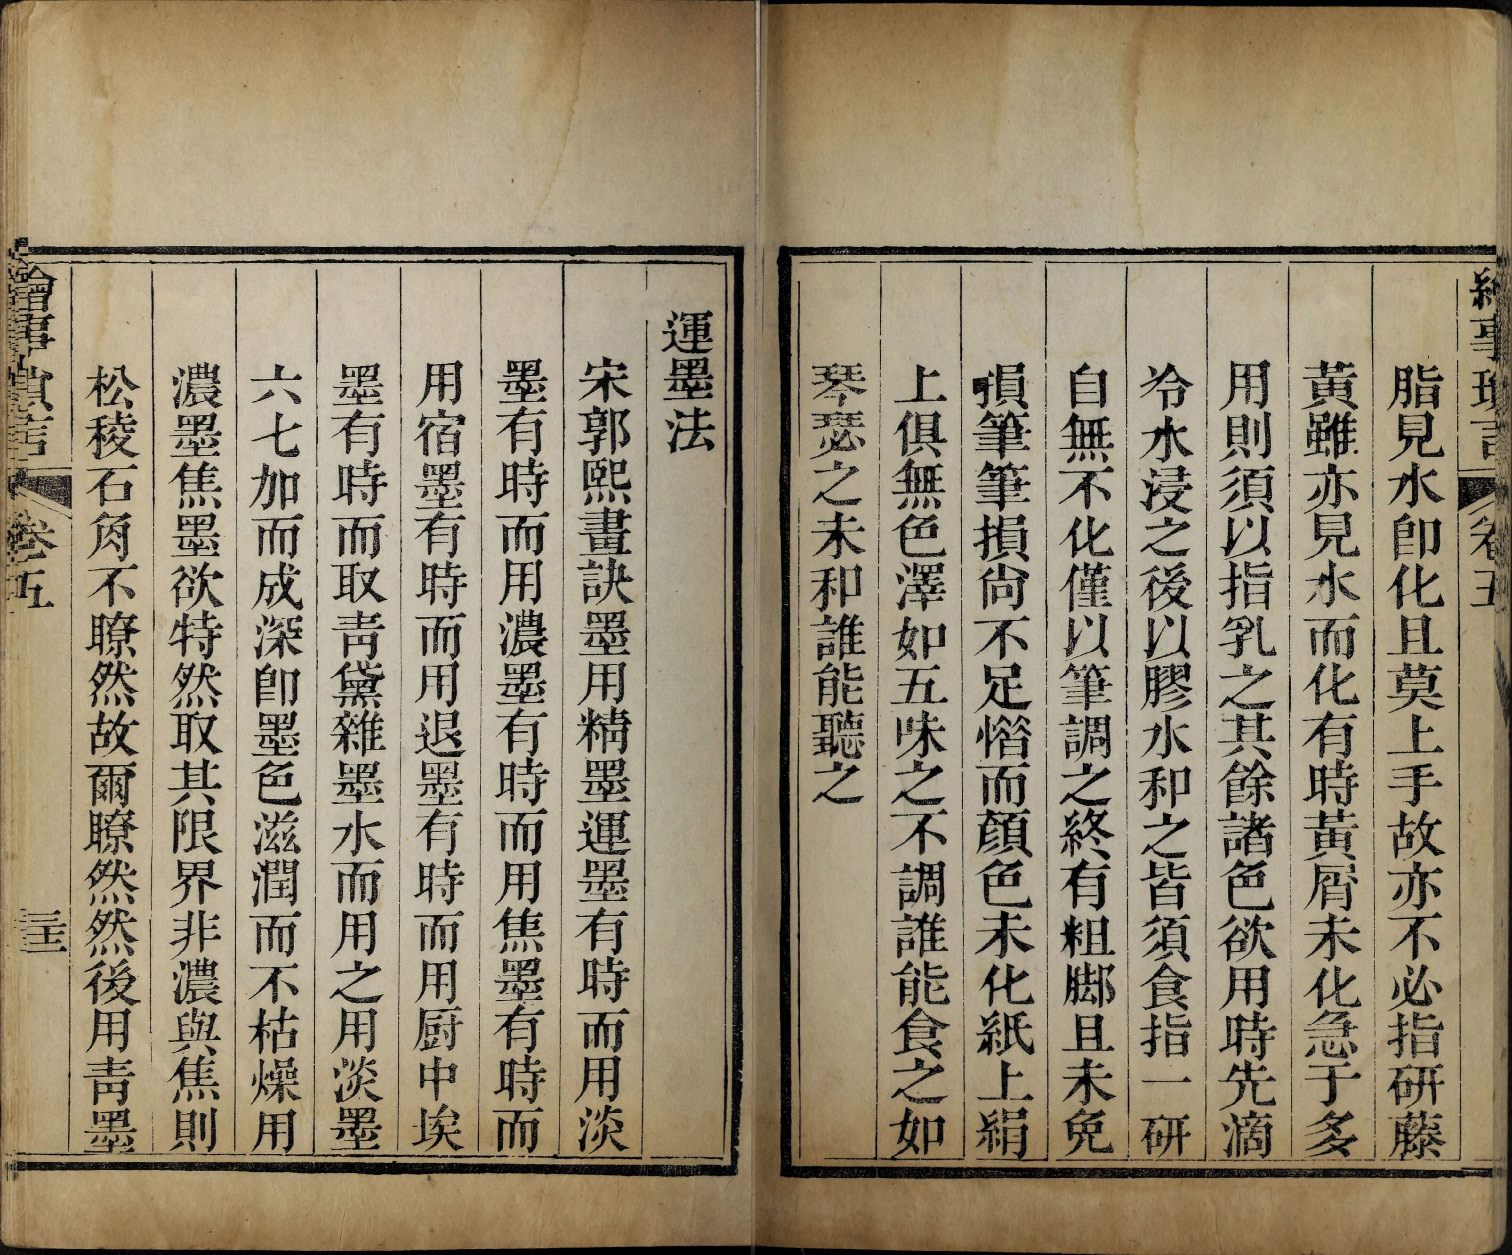 繪事瑣言
卷五
脂見水卽化且莫上手故亦不必指研藤
黃雖亦見水而化有時黃屑未化急于多
用則須以指乳之其餘諸色欲用時先滴
冷水浸之後以膠水和之皆須食指一研
自無不化僅以筆調之終有粗腳且未免
損筆筆損尙不足惜而顏色未化紙上絹
上俱無色澤如五味之不調誰能食之如
琴瑟之未和誰能聽之
運墨法
宋郭熙畫訣墨用精墨運墨有時而用淡
墨有時而用濃墨有時而用焦墨有時而
用宿墨有時而用退墨有時而用厨中埃
墨有時而取靑黛雜墨水而用之用淡墨
六七加而成深卽墨色滋潤而不枯燥用
濃墨焦墨欲特然取其限界非濃與焦則
松稜石角不瞭然故爾瞭然然後用靑墨
繪事瑣言
卷五